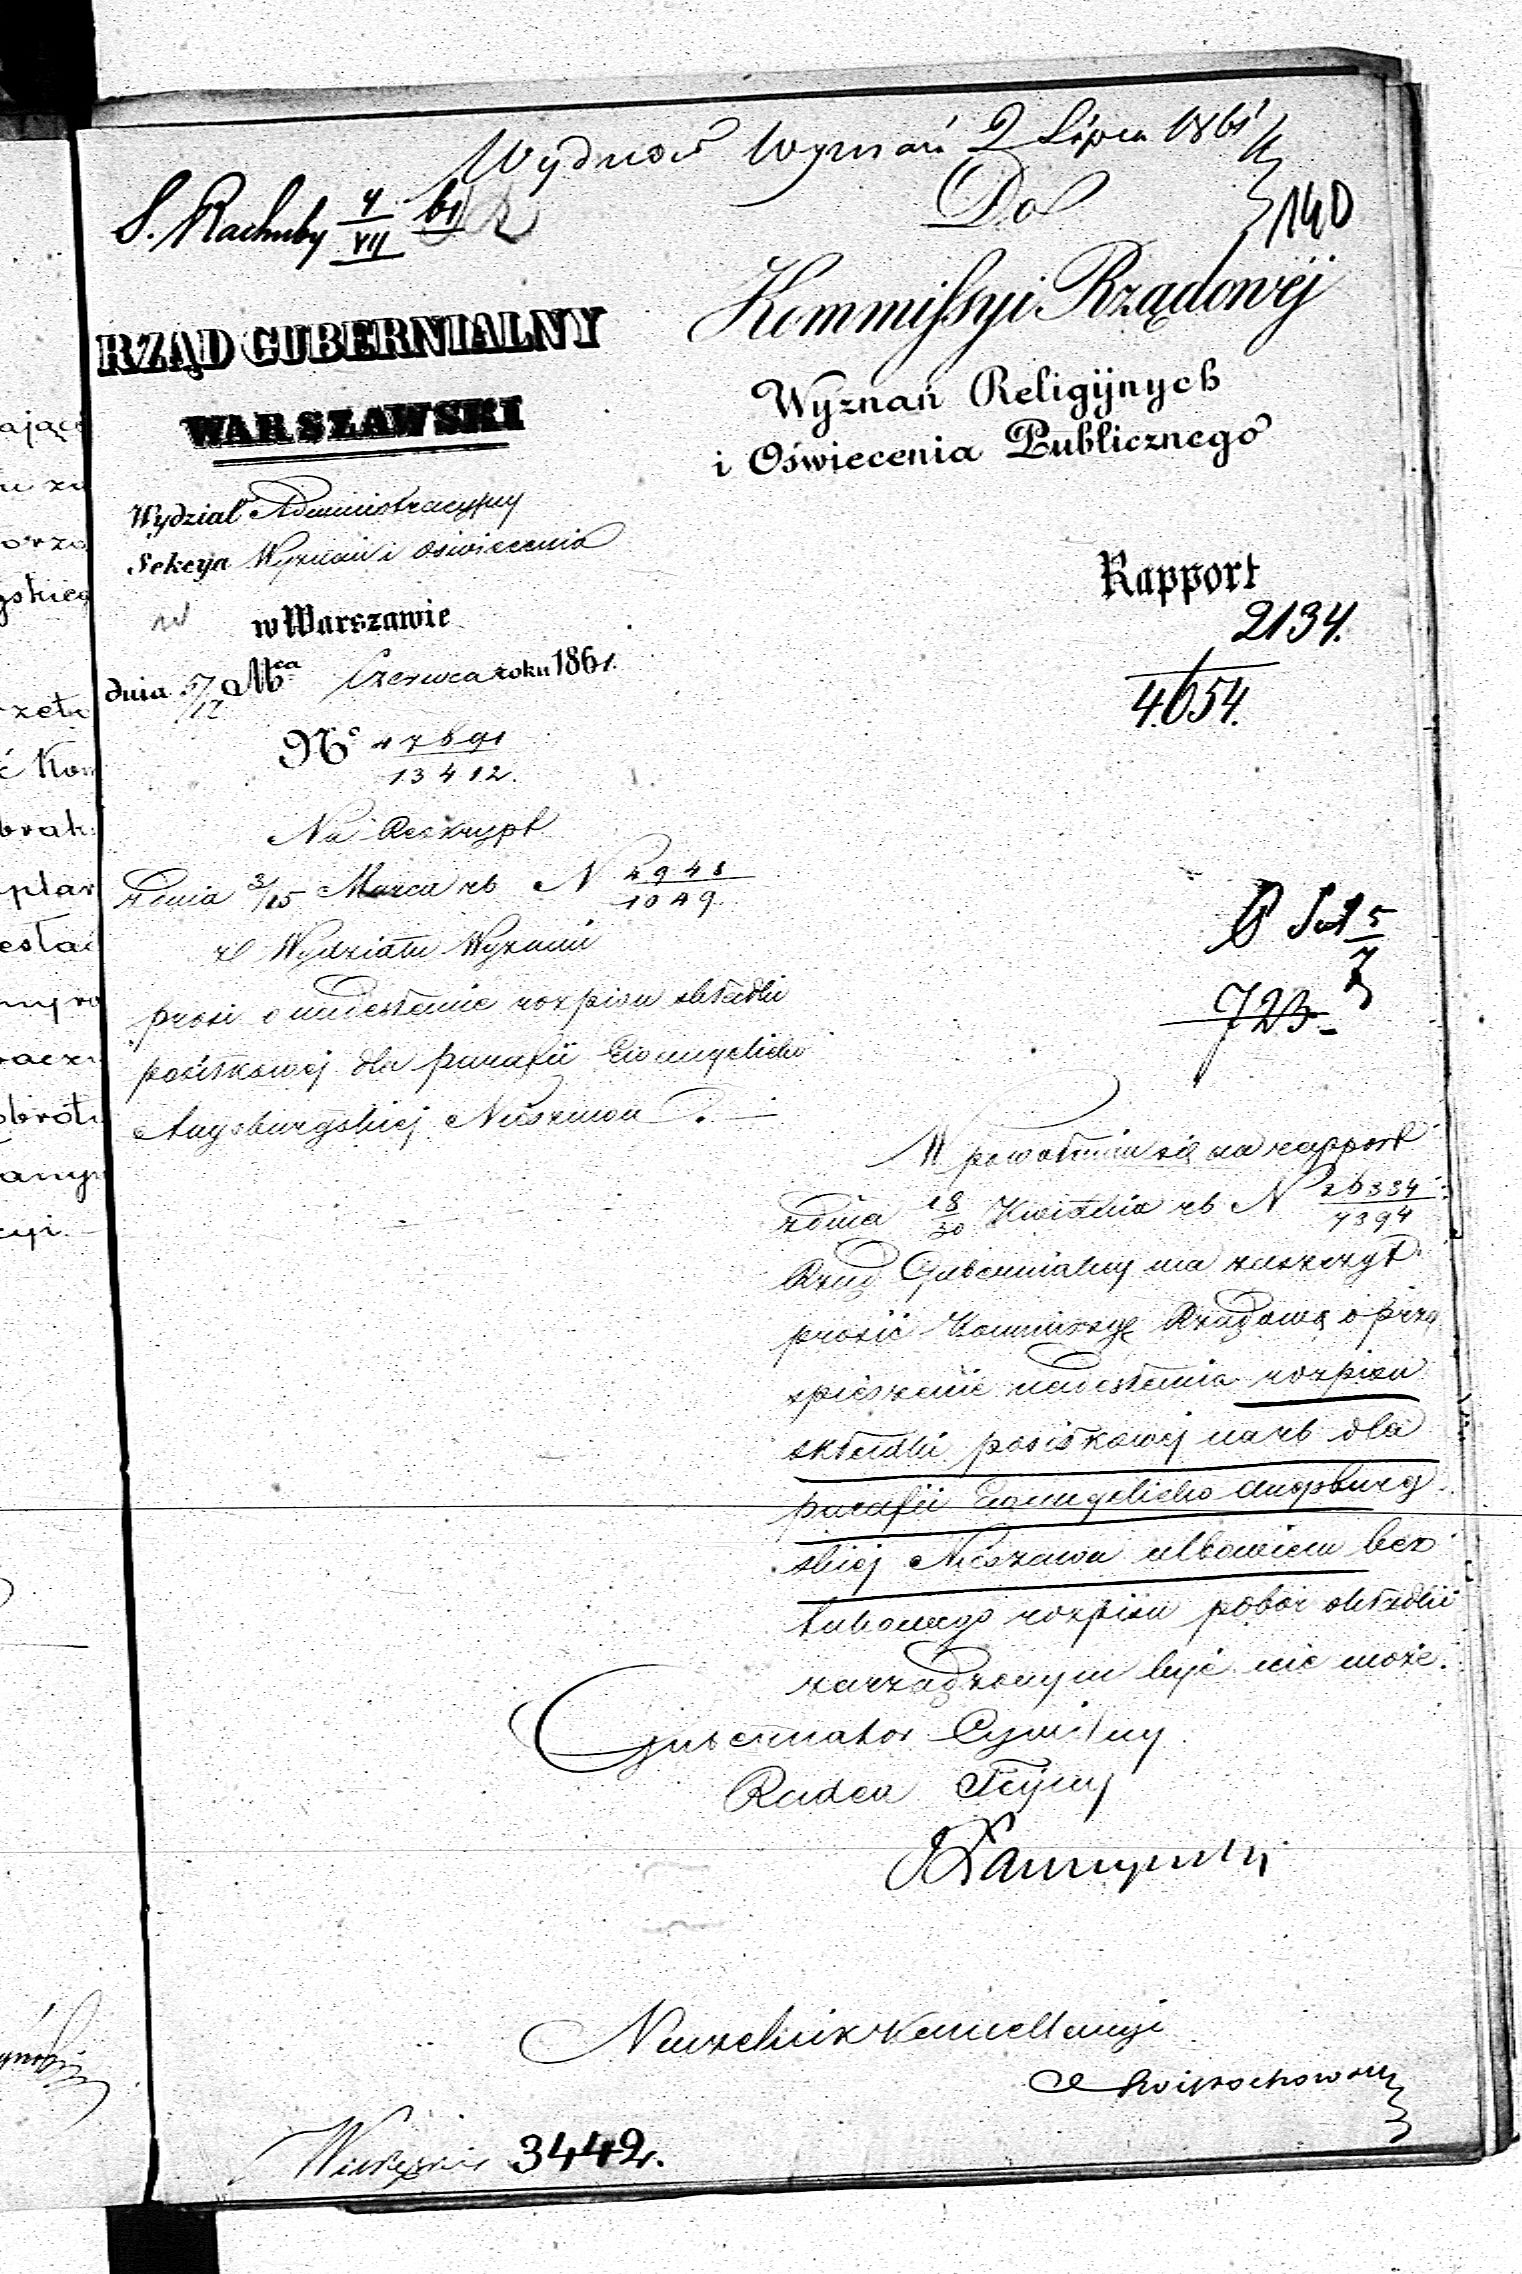 Wydział Wyznań 2 Lipca 1861
S. Rachuby 4/VII 61
140
Do
Kommissyi Rządowéj
Wyznań Religijnych
i Oświecenia Publicznego
RZĄD GUBERNIALNY
WARSZAWSKI
Wydział Administracyjny
Sekcya Wyznań i Oświecenia
w Warszawie
dnia 5/17 Mca Czerwca roku 1861.
Rapport
2134.
4654.
No 47691
13412.
Na Reskrypt
z dnia 3/15 Marca rb N 2948
1049.
z Wydziału Wyznań
prosi o nadesłanie rozpisu składki
posiłkowej dla parafii Ewangelicko
Augsburgskiej Nieszawa.
5/7
723
W powołaniu się na rapport
z dnia 18/30 Kwietnia rb N 26334
7394
Rząd Gubernialny ma zaszczyt
prosić Kommissyę Rządową o przy
spieszenie nadesłania rozpisu
składki posiłkowej na rb dla
parafii Ewangelicko Augsburg
skiej Nieszawa albowiem bez
takowego rozpisu pobór składki
zarządzonym być nie może.
Gubernator Cywilny
Radca Tajny
Łaszczyński
Naczelnik Kancellaryi
Świętochowski
3442.